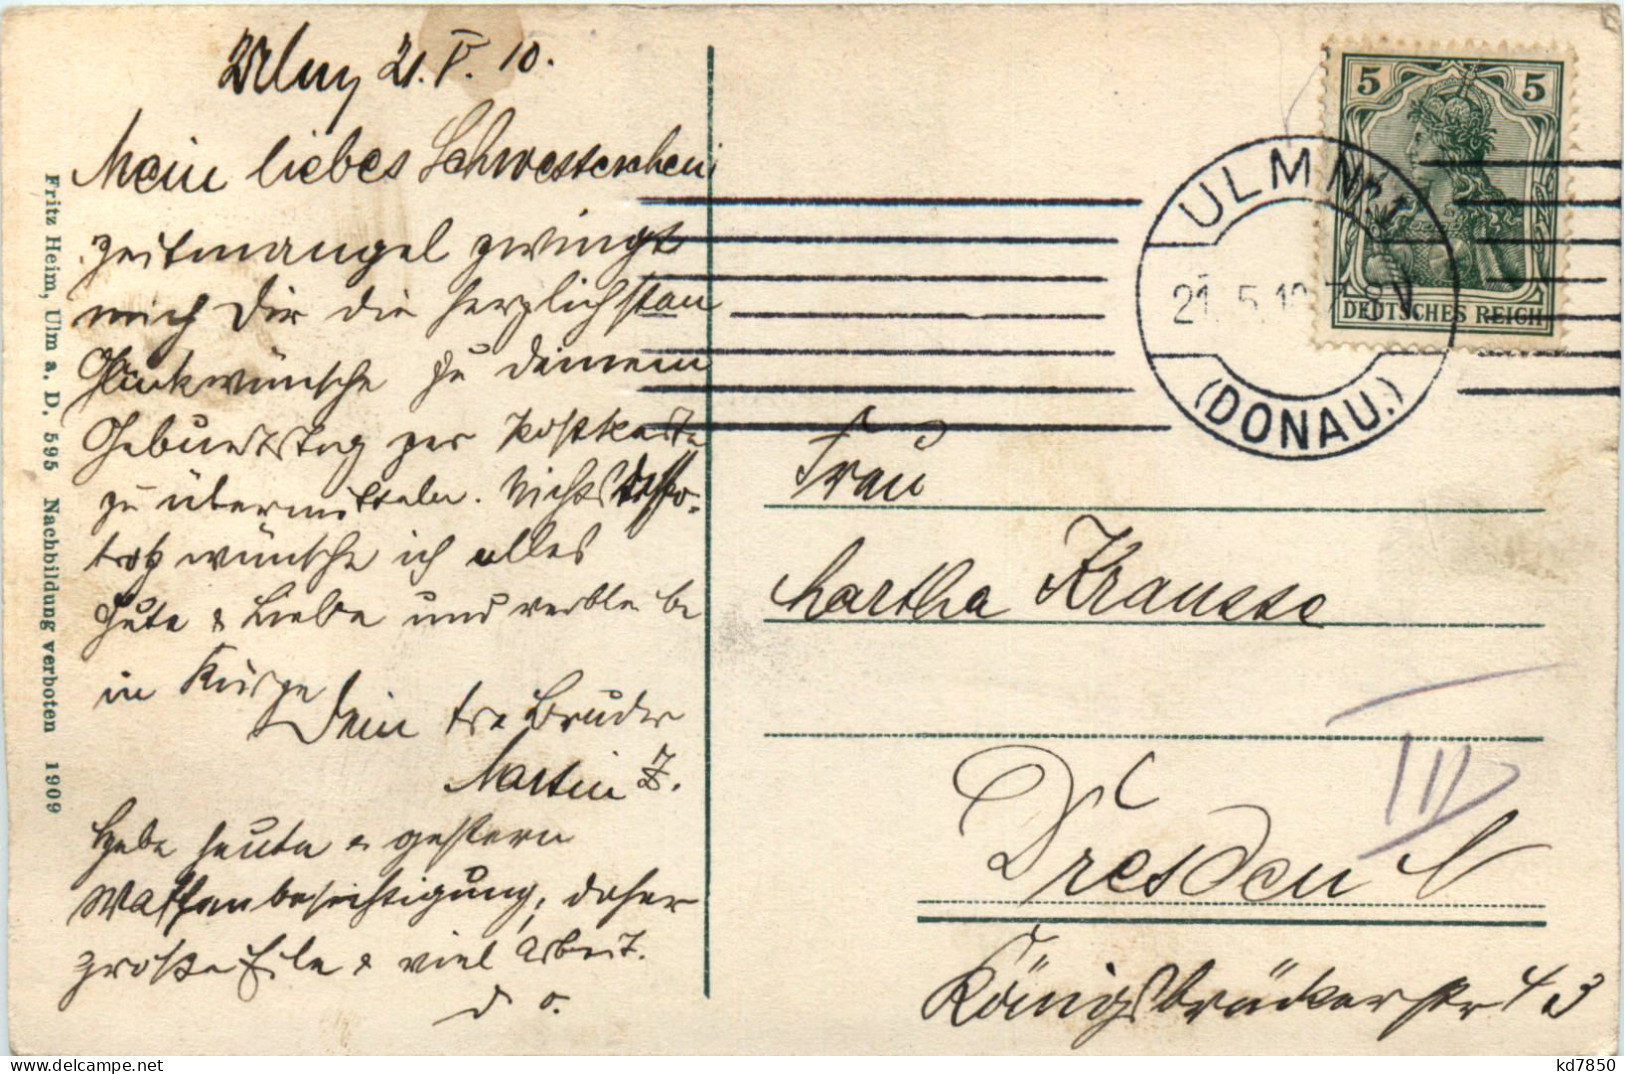 Ulm 21. V. 10.
Mein liebes Schwesterchen!
Zeitmangel zwingt
mich Dir die herzlichsten
Glückwünsche zu Deinem
Geburtstag per Postkarte
zu übermitteln. Nichtsdesto-
trotz wünsche ich alles
Gute & Liebe und verbleibe
in Kürze
Dein tr. Bruder
Martin Z.
Habe heute & gestern
Waffenbesichtigung, daher
große Eile & viel Arbeit.
d. o.
Fritz Heim, Ulm a. D. 595 Nachbildung verboten 1909
5 5
DEUTSCHES REICH
ULM Nr. 1
21. 5. 10. 7-8 V
(DONAU.)
Frau
Martha Krausse
III
Dresden N
Königsbrückerstr 43
kd7850